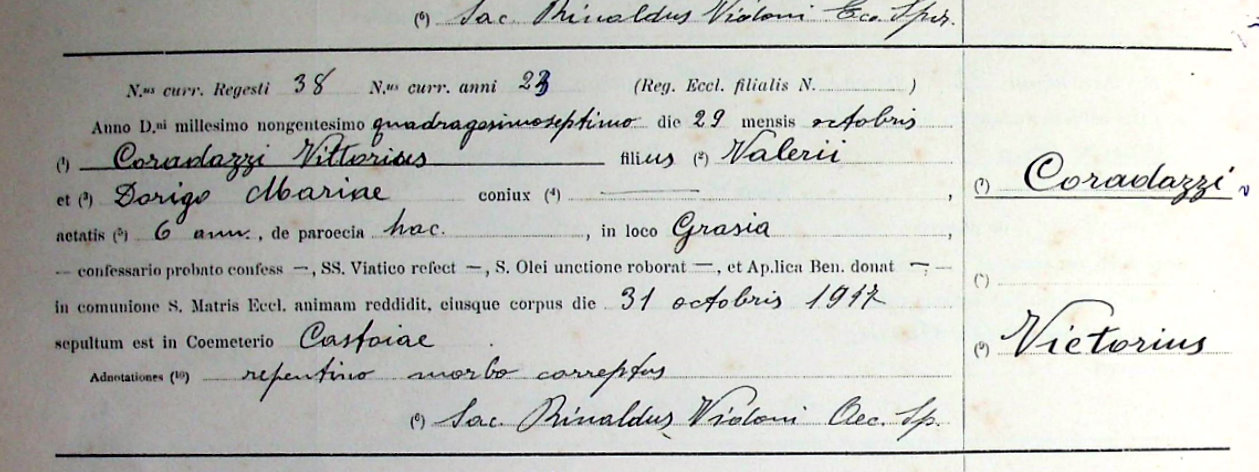 (6) Sac. Rinaldus Vidoni Eco. Spir.
N.us curr. Regesti 38 N.us curr. anni 23 (Reg. Eccl. filialis N. )
Anno D.ni millesimo nongentesimo quadragesimoseptimo die 29 mensis octobris
(1) Coradazzi Vittorius filius (2) Valerii
et (3) Dorigo Mariae coniux (4) ,
aetatis (5) 6 ann., de paroecia hac. , in loco Grasia ,
— confessario probato confess —, SS. Viatico refect —, S. Olei unctione roborat —, et Ap.lica Ben. donat —, —
in comunione S. Matris Eccl. animam reddidit, eiusque corpus die 31 octobris 1947
sepultum est in Coemeterio Castoiae .
Adnotationes (10) repentino morbo correptus
(6) Sac. Rinaldus Vidoni Oec. Sp.
(7) Coradazzi
(9) Victorius